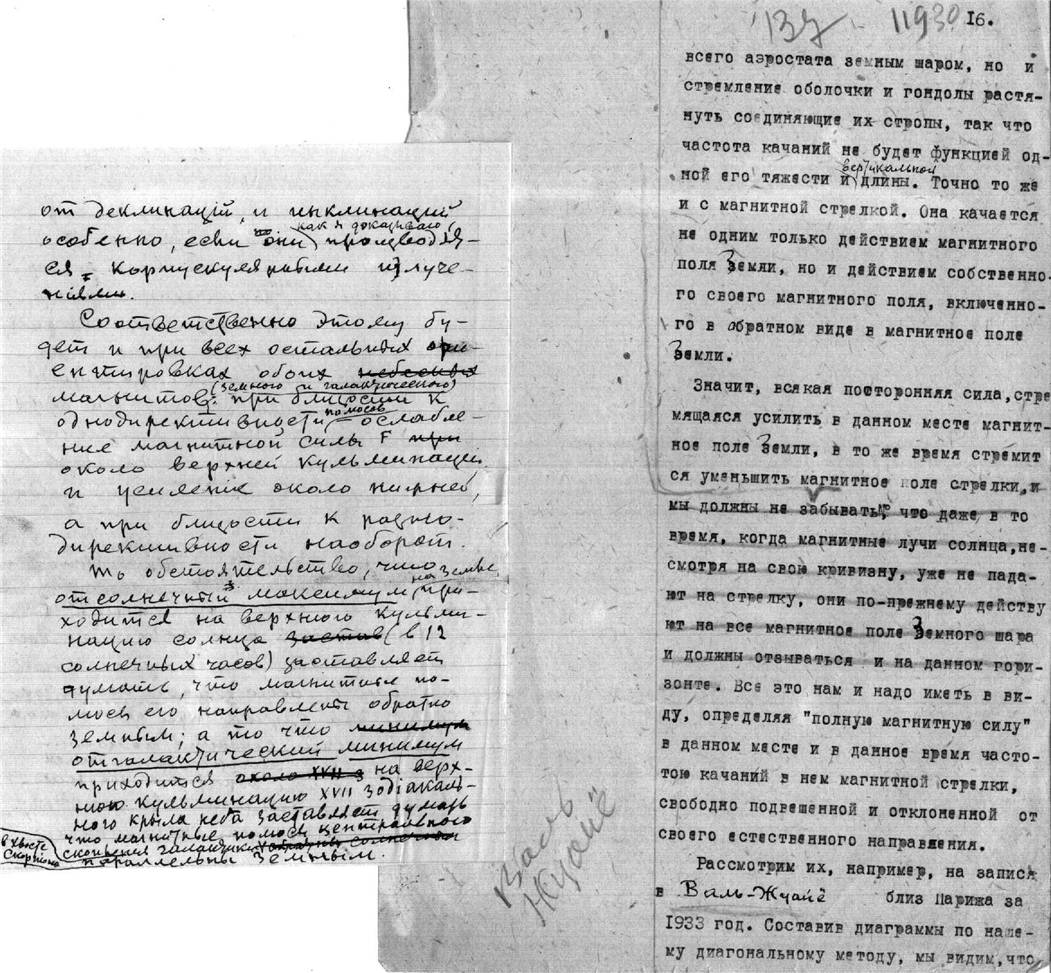 от деклинацiй, и инклинаций
особенно, если они как я доказываю, производят-
ся корпускулярными излуче-
ниями.
Соответственно этому бу-
дет и при всех остальных ори-
ентировках обоих небесных
(земного и галактического)
магнитов: при близости к
полюсов
однодирективности = ослабле-
ние магнитной силы F при
около верхней кульминации
и усиление около нижней,
а при близости к разно-
директивности наоборот.
То обстоятельство, что на земле
отсолнечный максимум при-
ходится на верхнюю кульми-
нацию солнца (в 12
солнечных часов) заставляет
думать, что магнитные по-
люсы его направлены обратно
земным; а то что минимум
отгалактический минимум
приходится около XVII на верх-
нюю кульминацию XVII зодiакаль-
ного крыла неба заставляет думать
что магнитные полюсы центрального
в хвосте Скорпиона
скопления галактики
параллельны земным.
137 11930 16.
всего аэростата земным шаром, но и
стремление оболочки и гондолы растя-
нуть соединяющие их стропы, так что
частота качаний не будет функцией од-
вертикальной
ной его тяжести и длины. Точно то же
и с магнитной стрелкой. Она качается
не одним только действием магнитного
поля Земли, но и действием собственно-
го своего магнитного поля, включенно-
го в обратном виде в магнитное поле
Земли.
Значит, всякая посторонняя сила, стре
мящаяся усилить в данном месте магнит-
ное поле Земли, в то же время стремит
ся уменьшить магнитное поле стрелки, и
мы должны не забывать, что даже в то
время, когда магнитные лучи солнца, не-
смотря на свою кривизну, уже не пада-
ют на стрелку, они по-прежнему действу
ют на все магнитное поле Земного шара
и должны отзываться и на данном гори-
зонте. Все это нам и надо иметь в ви-
ду, определяя "полную магнитную силу"
в данном месте и в данное время часто-
тою качаний в нем магнитной стрелки,
свободно подвешенной и отклоненной от
своего естественного направления.
Рассмотрим их, например, на записях
в Валь-Жуайё близ Парижа за
1933 год. Составив диаграммы по наше-
му диагональному методу, мы видим, что
Валь
Жуайё